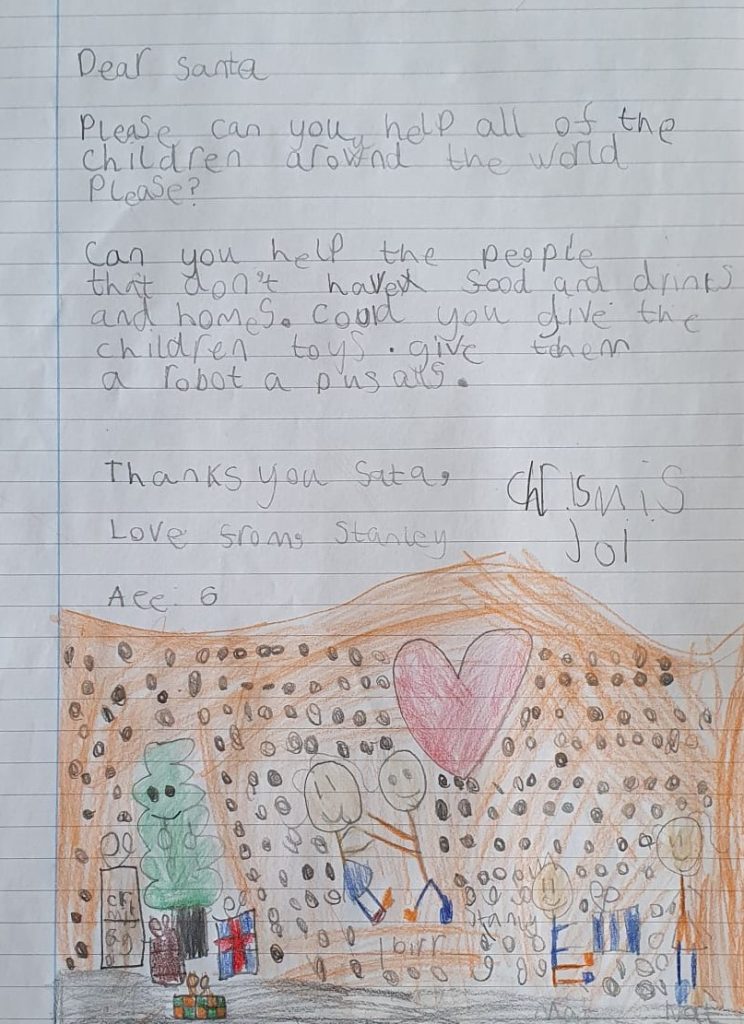 Dear Santa
Please can you help all of the
children around the world
Please?
Can you help the people
that don't have food and drinks
and homes. coud you give the
children toys. give them
a robot a pusals.
Thanks you Sata,
Chrismis
Joi
Love from, Stanley
Age 6